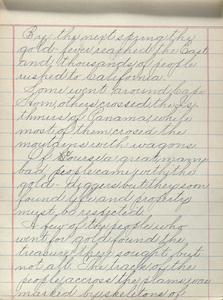 By the next spring the
gold-fever reached the East
and thousands of people
rushed to California.
Some went around Cape
Horn, others crossed the Is-
thmus of Panama, while
most of them crossed the
mountains with wagons.
Of course a great many
bad people came with the
gold-diggers but they soon
found life and property
must be respected.
A few of the people who
went for gold found the
treasure they sought, but
not all. The track of the
people across the plains was
marked by skeletons of